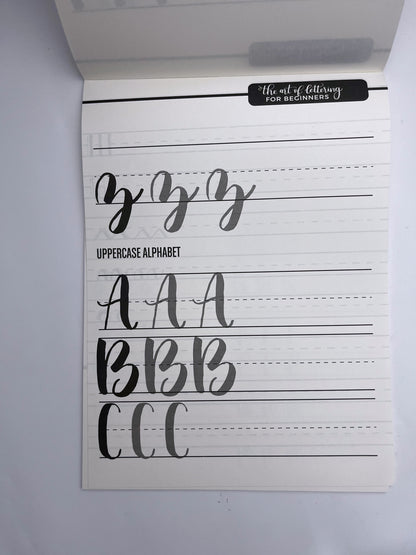 the art of lettering
FOR BEGINNERS
z z z
UPPERCASE ALPHABET
A A A
B B B
C C C